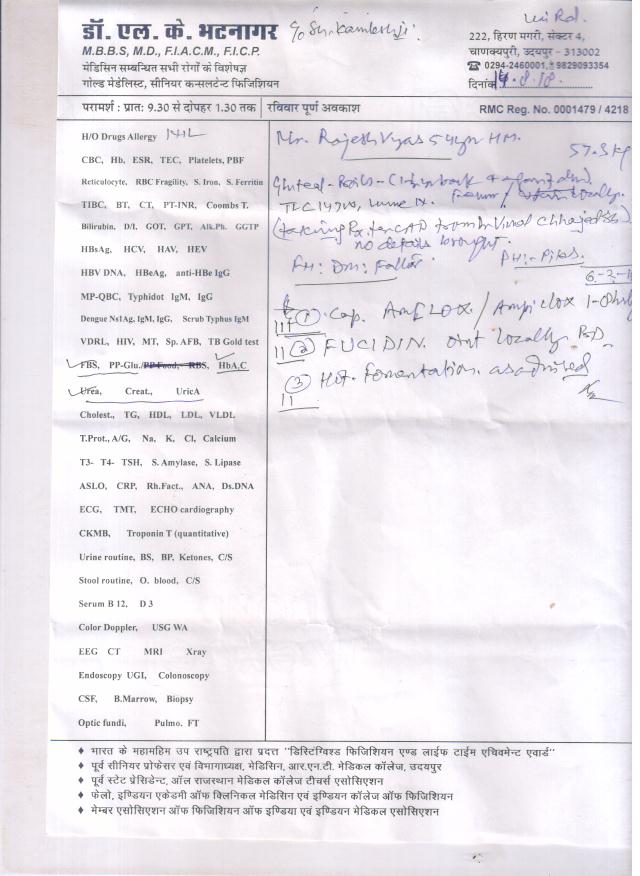 डॉ. एल. के. भटनागर
M.B.B.S, M.D., F.I.A.C.M., F.I.C.P.
मेडिसिन सम्बन्धित सभी रोगों के विशेषज्ञ
गोल्ड मेडेलिस्ट, सीनियर कन्सलटेन्ट फिजिशियन
222, हिरण मगरी, सेक्टर 4,
चाणक्यपुरी, उदयपुर - 313002
☎ 0294-2460001, 9829093354
दिनांक
परामर्श : प्रातः 9.30 से दोपहर 1.30 तक | रविवार पूर्ण अवकाश RMC Reg. No. 0001479 / 4218
H/O Drugs Allergy NIL
CBC, Hb, ESR, TEC, Platelets, PBF
Reticulocyte, RBC Fragility, S. Iron, S. Ferritin
TIBC, BT, CT, PT-INR, Coombs T.
Bilirubin, D/I, GOT, GPT, Alk.Ph. GGTP
HBsAg, HCV, HAV, HEV
HBV DNA, HBeAg, anti-HBe IgG
MP-QBC, Typhidot IgM, IgG
Dengue Ns1Ag, IgM, IgG, Scrub Typhus IgM
VDRL, HIV, MT, Sp. AFB, TB Gold test
FBS, PP-Glu./PP Food, RBS, HbA,C
Urea, Creat., UricA
Cholest., TG, HDL, LDL, VLDL
T.Prot., A/G, Na, K, Cl, Calcium
T3- T4- TSH, S. Amylase, S. Lipase
ASLO, CRP, Rh.Fact., ANA, Ds.DNA
ECG, TMT, ECHO cardiography
CKMB, Troponin T (quantitative)
Urine routine, BS, BP, Ketones, C/S
Stool routine, O. blood, C/S
Serum B 12, D 3
Color Doppler, USG WA
EEG CT MRI Xray
Endoscopy UGI, Colonoscopy
CSF, B.Marrow, Biopsy
Optic fundi, Pulmo. FT
Mr. Rajesh Vyas 54yr HM.
Gluteal - Boils
(taking Rx for CAD from Dr Vinod Chhajed
no details brought.
FH: DM: Father PH:- Piles.
① Cap. AMFLOX / Ampiclox
② FUCIDIN oint locally BD
③ Hot fomentation as advised
♦ भारत के महामहिम उप राष्ट्रपति द्वारा प्रदत्त "डिस्टिंग्विश्ड फिजिशियन एण्ड लाईफ टाईम एचिवमेन्ट एवार्ड"
♦ पूर्व सीनियर प्रोफेसर एवं विभागाध्यक्ष, मेडिसिन, आर.एन.टी. मेडिकल कॉलेज, उदयपुर
♦ पूर्व स्टेट प्रेसिडेन्ट, ऑल राजस्थान मेडिकल कॉलेज टीचर्स एसोसिएशन
♦ फेलो, इण्डियन एकेडमी ऑफ क्लिनिकल मेडिसिन एवं इण्डियन कॉलेज ऑफ फिजिशियन
♦ मेम्बर एसोसिएशन ऑफ फिजिशियन ऑफ इण्डिया एवं इण्डियन मेडिकल एसोसिएशन